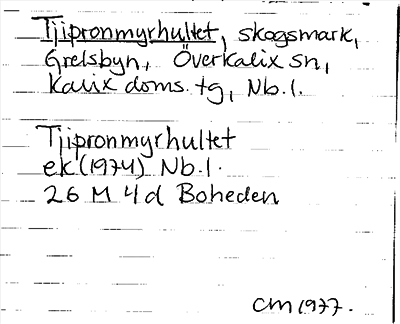 Tjipronmyrhultet, skogsmark,
Grelsbyn, Överkalix sn,
Kalix doms. tg, Nb.l.
Tjipronmyrhultet
ek (1974) Nb.l.
26 M 4d Boheden
CM 1977.